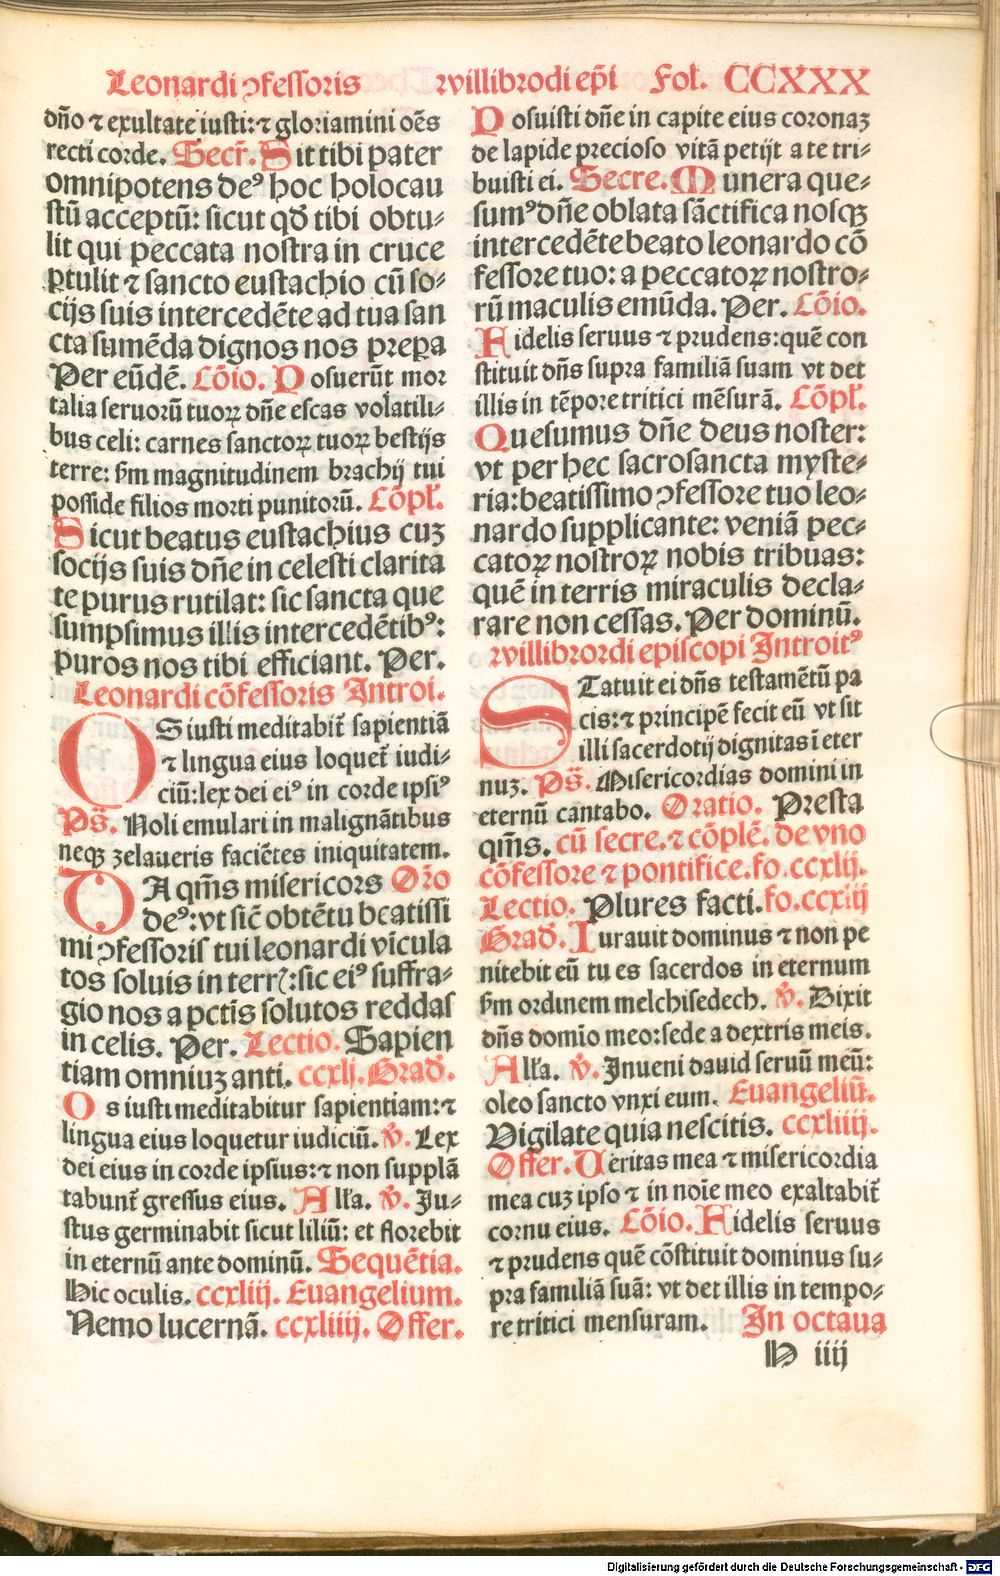 Leonardi ꝯfessoris willibrodi ep̃i Fol. CCXXX
dño ⁊ exultate iusti:⁊ gloriamini oẽs
recti corde. Secr̃. Sit tibi pater
omnipotens deꝰ hoc holocau
stũ acceptũ: sicut qđ tibi obtu⸗
lit qui peccata nostra in cruce
ꝑtulit ⁊ sancto eustachio cũ so⸗
cijs suis intercedẽte ad tua san
cta sumẽda dignos nos prepa
Per eũdẽ. Cõio. Posuerũt mor
talia seruorũ tuoꝝ dñe escas volatili⸗
bus celi: carnes sanctoꝝ tuoꝝ bestijs
terre: sm̃ magnitudinem brachij tui
posside filios morti punitorũ. Cõpl̃.
Sicut beatus eustachius cuꝫ
socijs suis dñe in celesti clarita
te purus rutilat: sic sancta que
sumpsimus illis intercedẽtibꝰ:
puros nos tibi efficiant. Per.
Leonardi cõfessoris Introi.
OS iusti meditabit̃ sapientiã
⁊ lingua eius loquet̃ iudi⸗
ciũ:lex dei eiꝰ in corde ipsiꝰ
Ps̃. Noli emulari in malignãtibus
neqꝫ zelaueris faciẽtes iniquitatem.
DA qm̃s misericors Or̃o
deꝰ:vt sic̃ obtẽtu beatissi
mi ꝯfessoris tui leonardi vĩcula
tos soluis in terr̃:sic eiꝰ suffra⸗
gio nos a pctĩs solutos reddas
in celis. Per. Lectio. Sapien
tiam omniuꝫ anti. ccxlj. Grad̃.
Os iusti meditabitur sapientiam:⁊
lingua eius loquetur iudiciũ. ℣. Lex
dei eius in corde ipsius:⁊ non supplã
tabunt̃ gressus eius. All̃a. ℣. Ju⸗
stus germinabit sicut liliũ: et florebit
in eternũ ante dominũ. Sequẽtia.
Hic oculis. ccxliij. Euangelium.
Nemo lucernã. ccxliiij. Offer.
Posuisti dñe in capite eius coronaꝫ
de lapide precioso vitã petijt a te tri⸗
buisti ei. Secre. Munera que⸗
sumꝰ dñe oblata sãctifica nosqꝫ
intercedẽte beato leonardo cõ
fessore tuo: a peccatoꝝ nostro⸗
rũ maculis emũda. Per. Cõio.
Fidelis seruus ⁊ prudens:quẽ con
stituit dñs supra familiã suam vt det
illis in tẽpore tritici mẽsurã. Cõpl̃.
Quesumus dñe deus noster:
vt per hec sacrosancta myste⸗
ria:beatissimo ꝯfessore tuo leo⸗
nardo supplicante: veniã pec⸗
catoꝝ nostroꝝ nobis tribuas:
quẽ in terris miraculis decla⸗
rare non cessas. Per dominũ.
willibrordi episcopi Introitꝰ
STatuit ei dñs testamẽtũ pa
cis:⁊ principẽ fecit eũ vt sit
illi sacerdotij dignitas ĩ eter
nuꝫ. Ps̃. Misericordias domini in
eternũ cantabo. Oratio. Presta
qm̃s. cũ secre. ⁊ cõplẽ. de vno
cõfessore ⁊ pontifice. fo. ccxlij.
Lectio. Plures facti. fo. ccxliij
Grad̃. Iurauit dominus ⁊ non pe
nitebit eũ tu es sacerdos in eternum
sm̃ ordinem melchisedech. ℣. Dixit
dñs domĩo meo:sede a dextris meis.
All̃a. ℣. Inueni dauid seruũ meũ:
oleo sancto vnxi eum. Euangeliũ.
Vigilate quia nescitis. ccxliiij.
Offer. Veritas mea ⁊ misericordia
mea cuꝫ ipso ⁊ in noĩe meo exaltabit̃
cornu eius. Cõio. Fidelis seruus
⁊ prudens quẽ cõstituit dominus su⸗
pra familiã suã: vt det illis in tempo⸗
re tritici mensuram. In octaua
H iiij
Digitalisierung gefördert durch die Deutsche Forschungsgemeinschaft - DFG